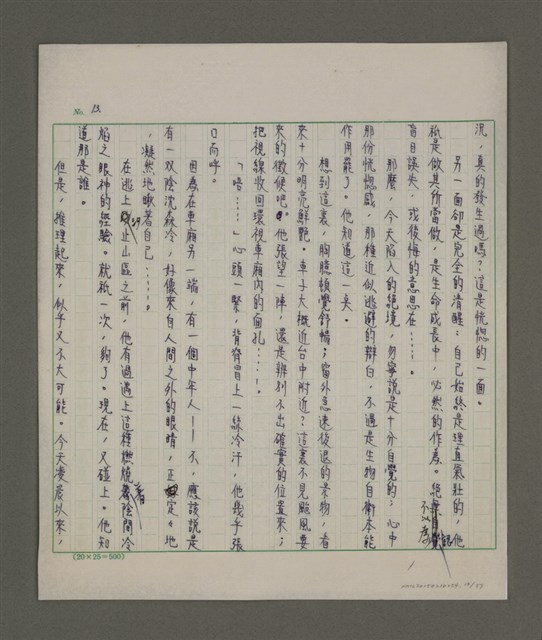 No. 13
況，真的發生過嗎？這是恍惚的一面。
另一面卻是完全的清醒：自己始終是理直氣壯的，他
祇是做其所當做，是生命成長中，必然的作為。絕不以為
盲目誤失，或後悔的意思在……。
那麼，今天陷入的絕境，勿寧說是十分自覺的；心中
那份恍惚感，那種近似逃避的辯白，不過是生物自衛本能
作用罷了。他知道這一矣。
想到這裏，胸臆頓覺舒暢；窗外急速後退的景物，看
來十分明亮鮮艷。車子大概近台中附近？這裏不見颱風要
來的徵候吧。他張望一陣，還是辨別不出確實的位置來；
把視線收回環視車廂內的
「唔……」心頭一緊，背脊冒上一絲冷汗，他幾乎張
口而呼。
因為在車廂另一端，有一個中年人——不，應該說是
有一双陰沈森冷，好像來自人間之外的眼睛，正定定地
，凝然地瞅著自己……。
在逃上阿止山區之前，他有過遇上這種燃燒著陰間冷
焰之眼神的經驗。就祇一次，夠了。現在，又碰上。他知
道那是誰。
但是，推理起來，似乎又不大可能。今天凌晨以來，
(20×25=500)